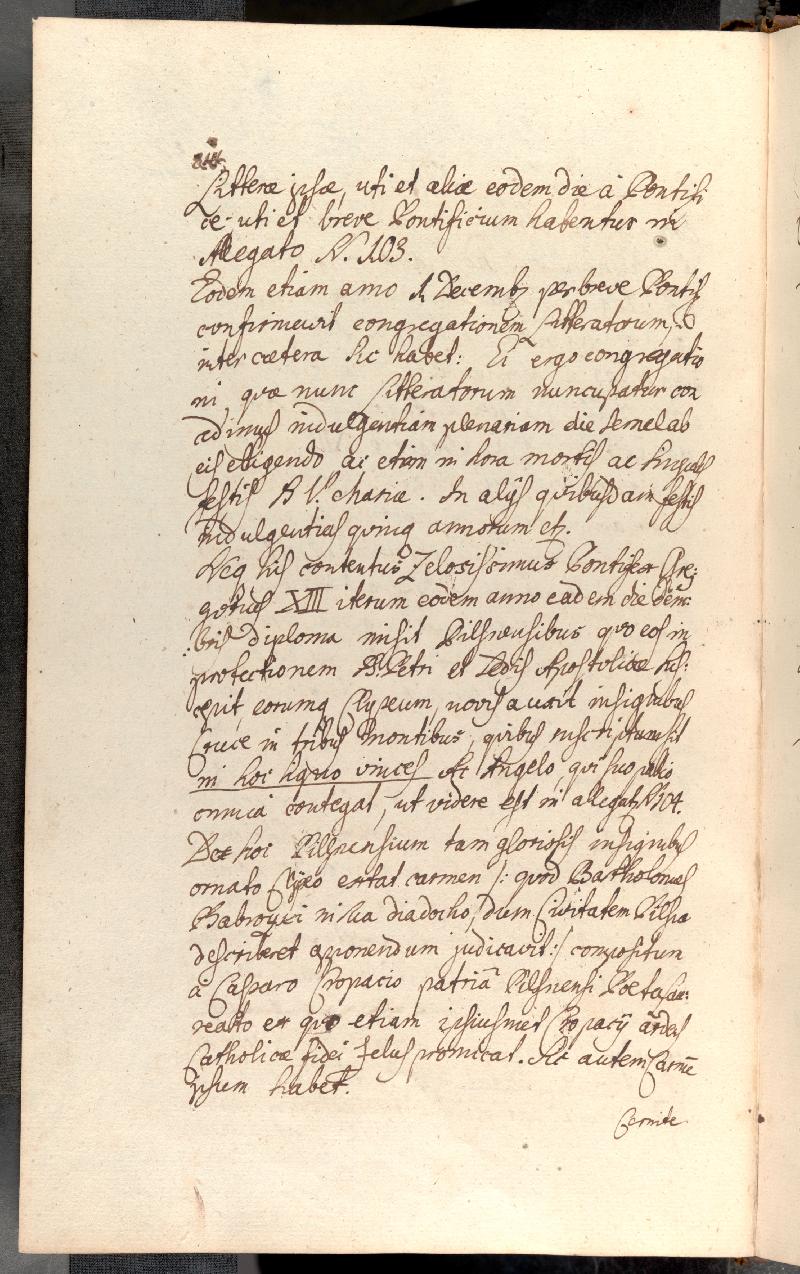 Litterae ipsae, uti et aliae eodem die à Pontifi
ce uti et breve Pontificium habentur in
Allegato N. 103.
Eodem etiam anno 1 Decemb per breve Pontif
confirmavit congregationem Litteratorum,
inter caetera sic habet: Ei ergo congregatio
ni quae nunc Litteratorum nuncupatur con
cedimus indulgentiam plenariam die semel ab
eis eligendo ac etiam in hora mortis ac singulis
festis B V. Mariae. In alijs quibusdam festis
indulgentias quinq annorum etz.
Neq his contentus Zelosissimus Pontifex Gre:
gorius XIII iterum eodem anno eadem die Dem:
bris diploma misit Pilsnensibus quo eos in
protectionem B. Petri et Sedis Apostolicae sus:
cepit, eorumq Clypeum, novis auxit insignibus
Cruce in tribus Montibus, quibus inscriptum sit
in hoc signo vinces Ac Angelo, qui suo pallio
omnia contegat, ut videre est in allegat N 104.
De hoc Pilsnensium tam gloriosis insignibus
ornato Clypeo extat carmen /: quod Bartholomaeus
Paproczi in sua diadocho, dum Civitatem Pilsna
describeret apponendum judicavit :/ compositum
à Casparo Cropacio patriâ Pilsnensi Poeta Lau:
reato ex quo etiam ipsiusmet Cropacij ardens
Catholicae fidei Zelus promicat. Sic autem Carme
ipsum habet.
Cernite